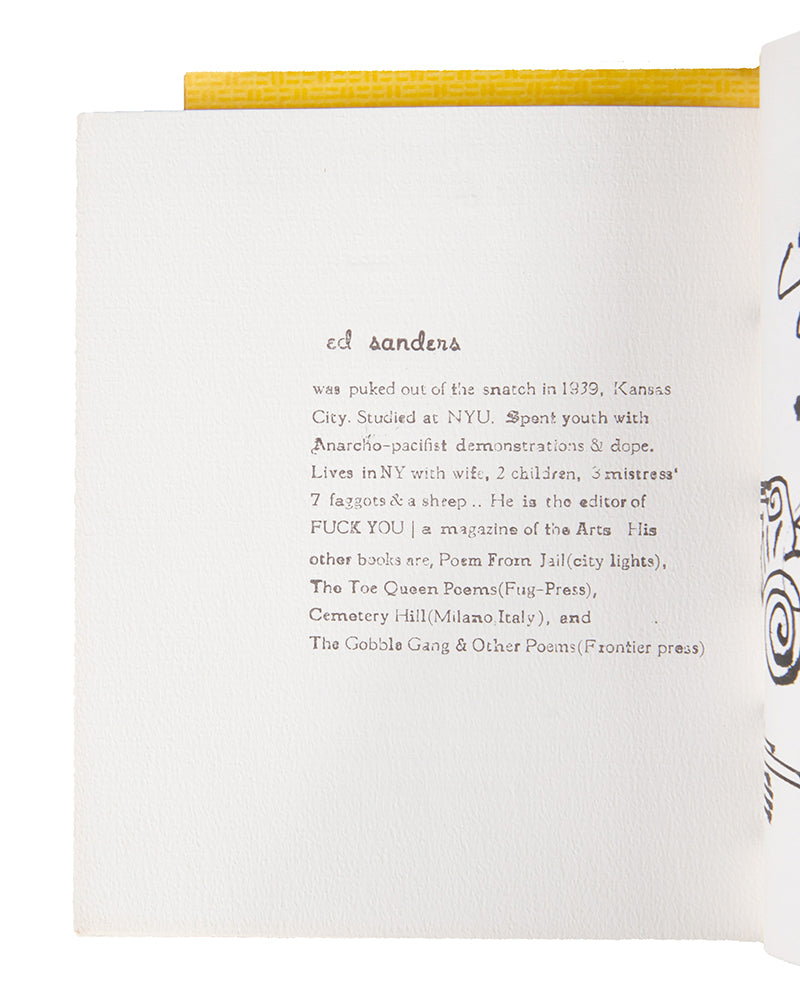 ed sanders
was puked out of the snatch in 1939, Kansas
City. Studied at NYU. Spent youth with
Anarcho-pacifist demonstrations & dope.
Lives in NY with wife, 2 children, 3 mistress'
7 faggots & a sheep .. He is the editor of
FUCK YOU | a magazine of the Arts His
other books are, Poem From Jail(city lights),
The Toe Queen Poems(Fug-Press),
Cemetery Hill(Milano,Italy), and
The Gobble Gang & Other Poems(Frontier press)